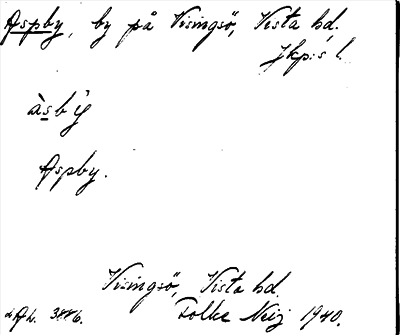 Aspby, by på Visingsö, Vista hd.
Jkp:s l.
àsbỳ
Aspby.
Visingsö, Vista hd.
Folke Neij 1940.